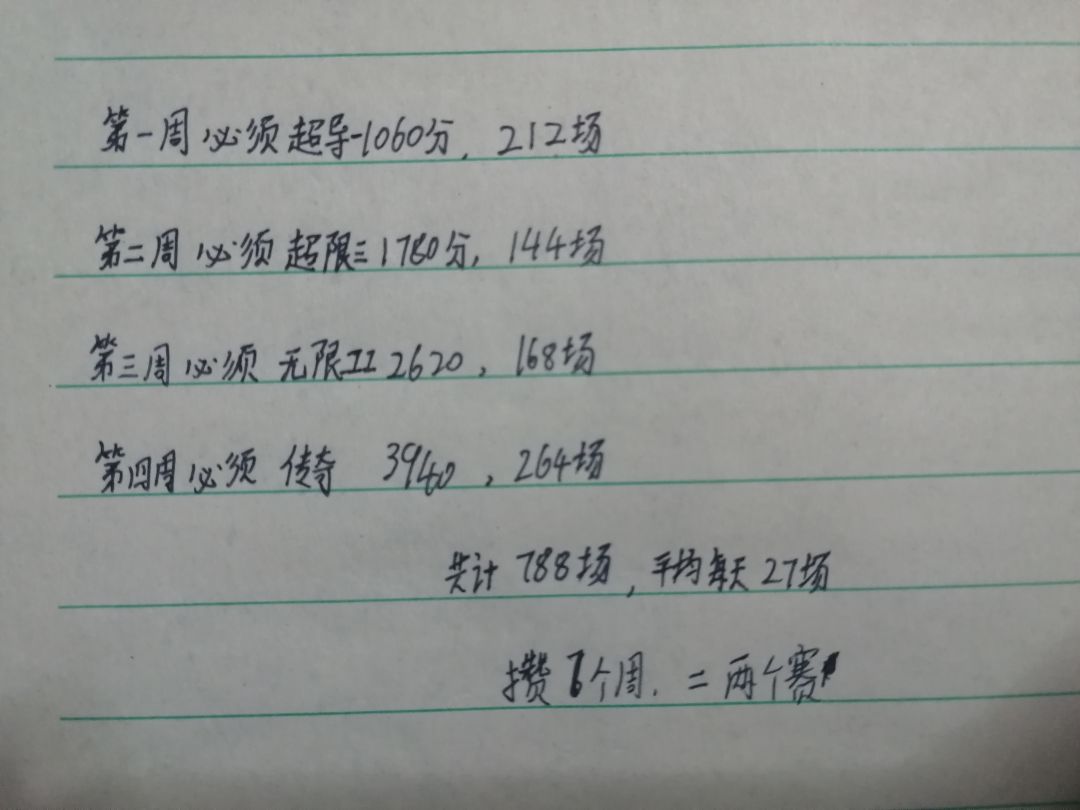 第一周必须超导-1060分,212场
第二周必须超限三1780分,144场
第三周必须 无限II 2620,168场
第四周必须 传奇 3940,264场
共计 788场,平均每天27场
攒 个周.=两个赛